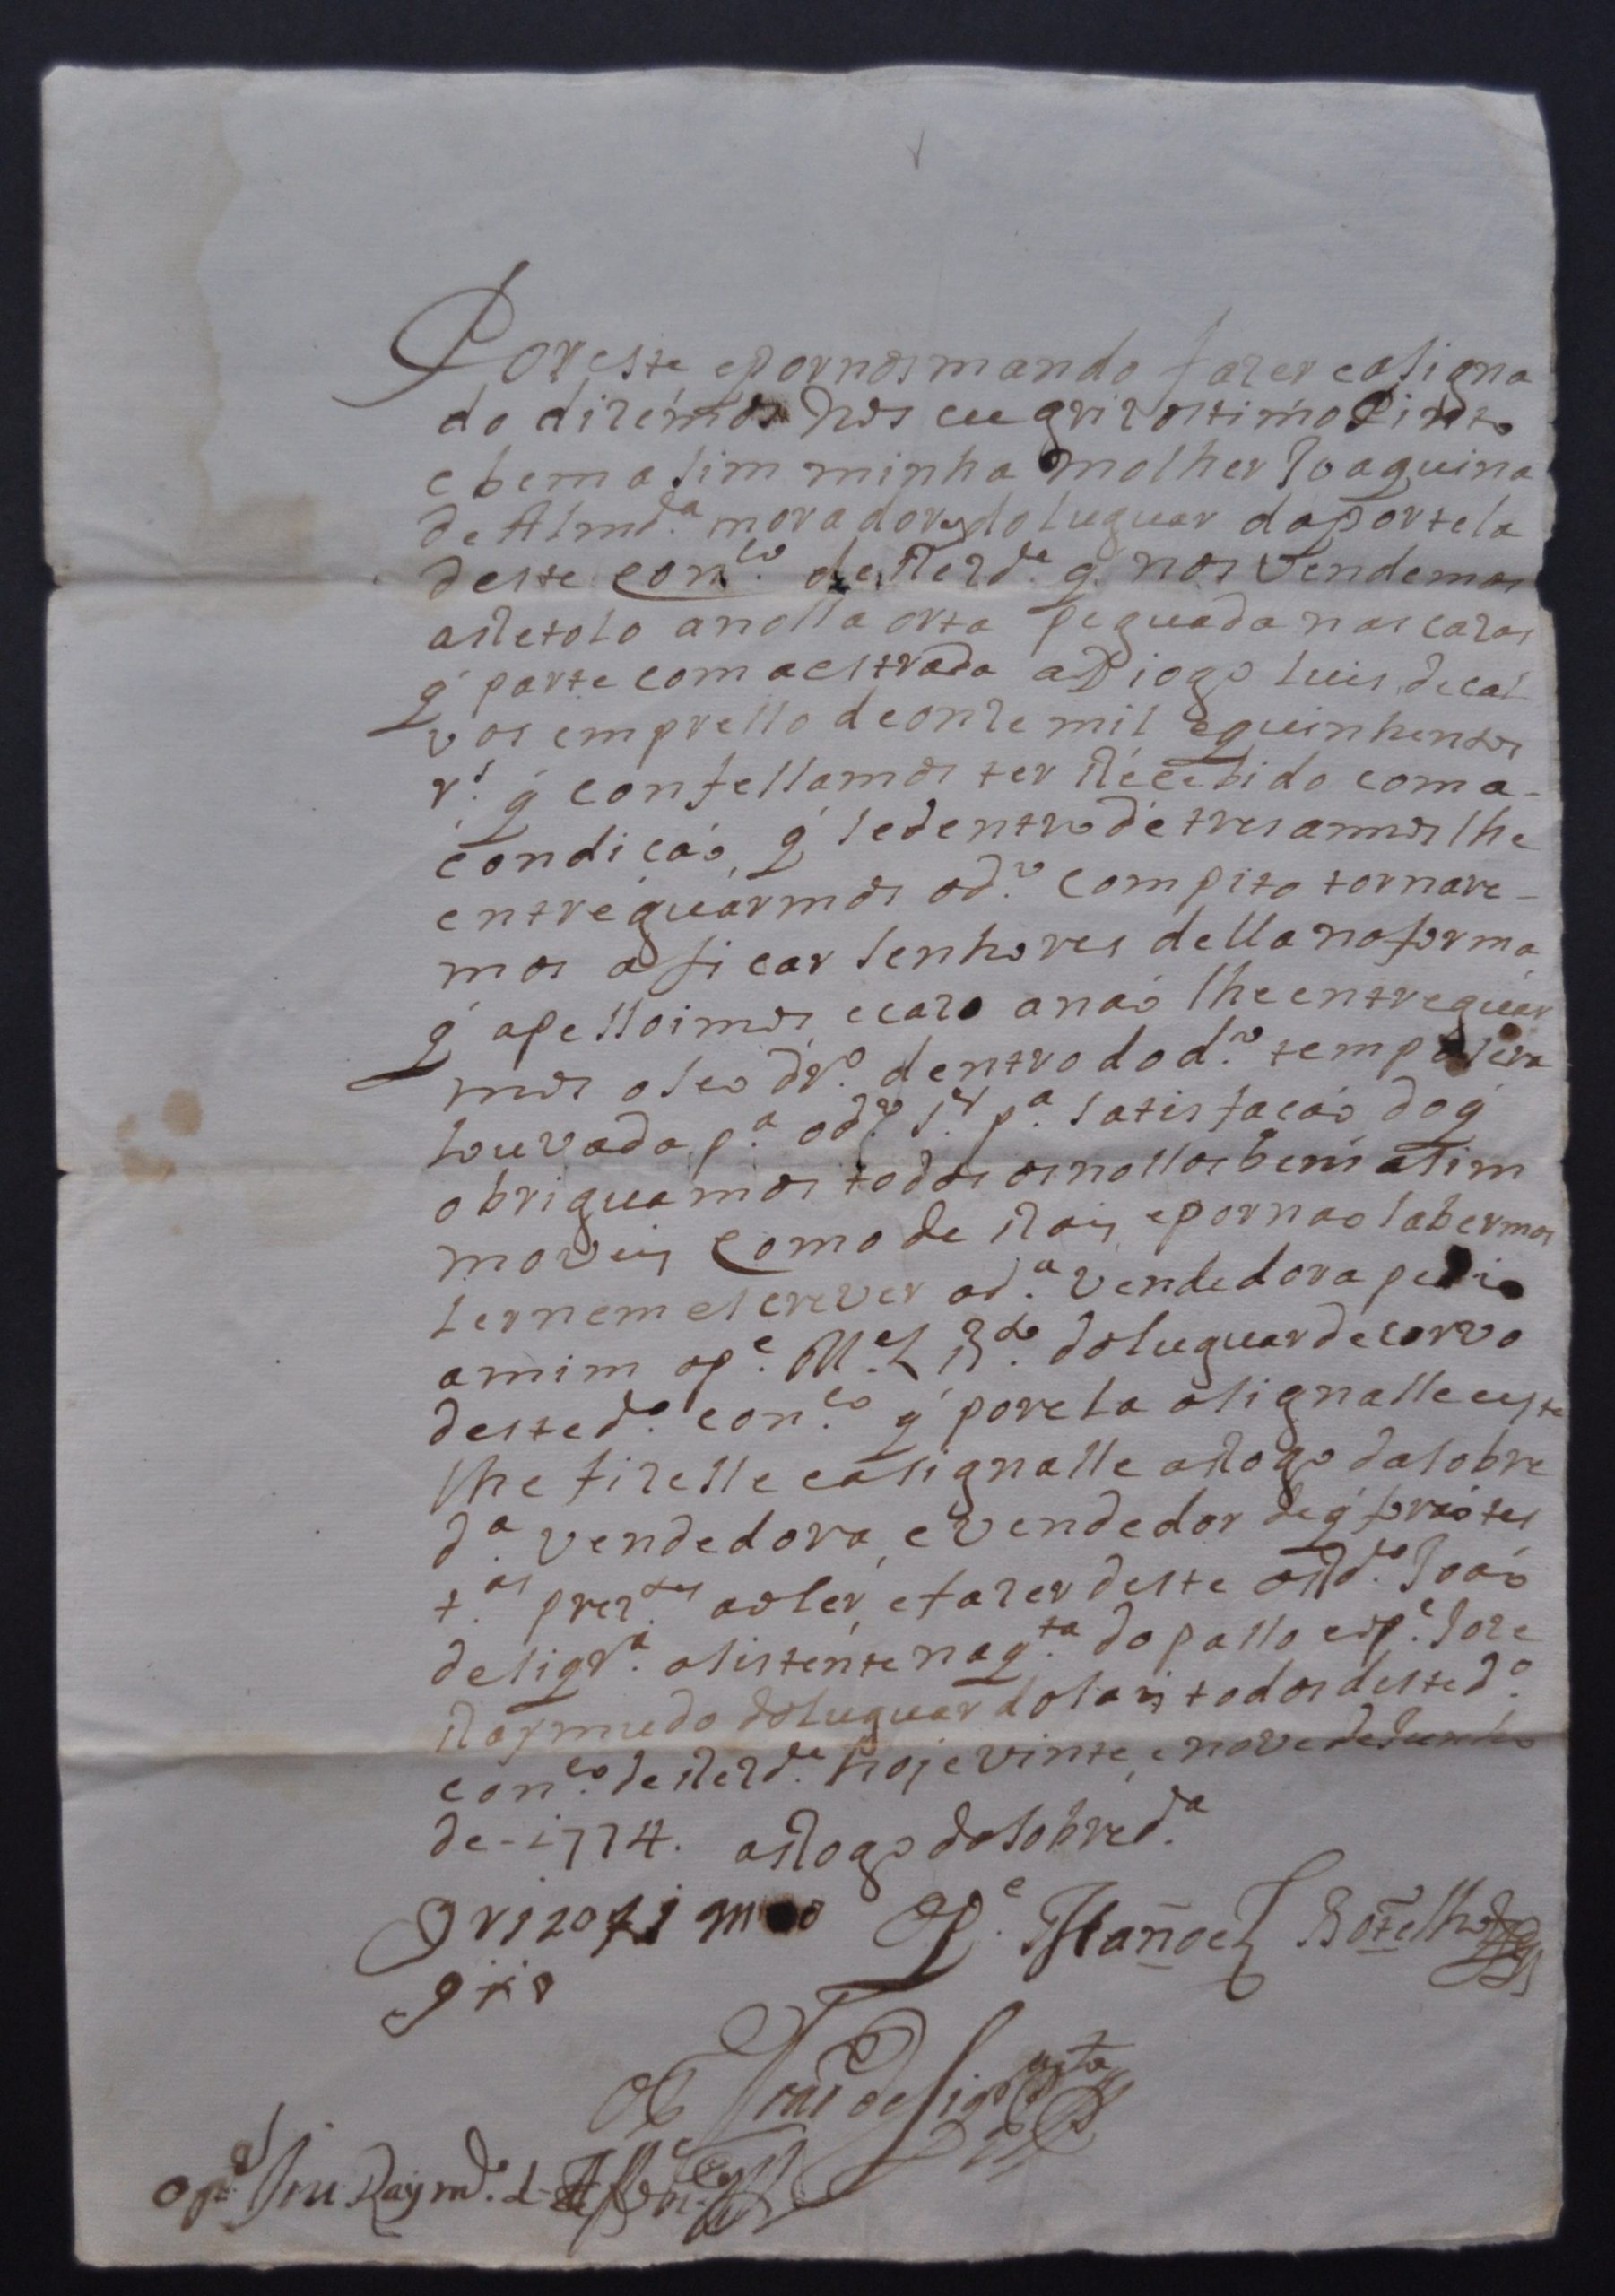 Por este e por nos mando fazer e asigna
do dizémos Nos eu grizostimo Pinto
e bem asim minha molher Joaquina
de Almd.ª moradores do luguar da portela
deste con.co de Rezd.e q. nos Vendemos
a Retolo a nossa orta peguada nas cazas
q́ parte com a estrada a Diogo Luis de cal
vos em presso de onze mil e quinhentos
r.s q́ confessamos ter Récebido com a-
condicáo q́ se dentro de tres annos lhe
entréguármos o d.ro com pito tornare-
mos a ficar senhores della na forma
q́ a pessoimos e cazo a naó lhe entreguár
mos o seo dr.o dentro do d.o tempo sera
louvada p.a o d.o S.r p.a satisfacáo do q́
obriguamos todos os nossos bens asim
moveis Como de Rais e por nao sabermos
ler nem escrever a d.a vendedora pedio
a mim o p.e M.el B.do do luguar de corvo
deste d.o con.co q́ por ela asignasse e este
lhe fizesse e asignasse a Rogo da sobre
d.a vendedora e vendedor de q́ foraó tes
t.as prez.tes ao ler e fazer deste o Rd.o Joaó
de siqr.a asistente na q.ta do passo e o p.e Joze
Raymudo do luguar do sais todos deste d.o
con.co de Rezd.e hoje vinte e nove de Junho
de-1774. a Rogo da sobred.a
grizosimo O P.e Manoel Botelho